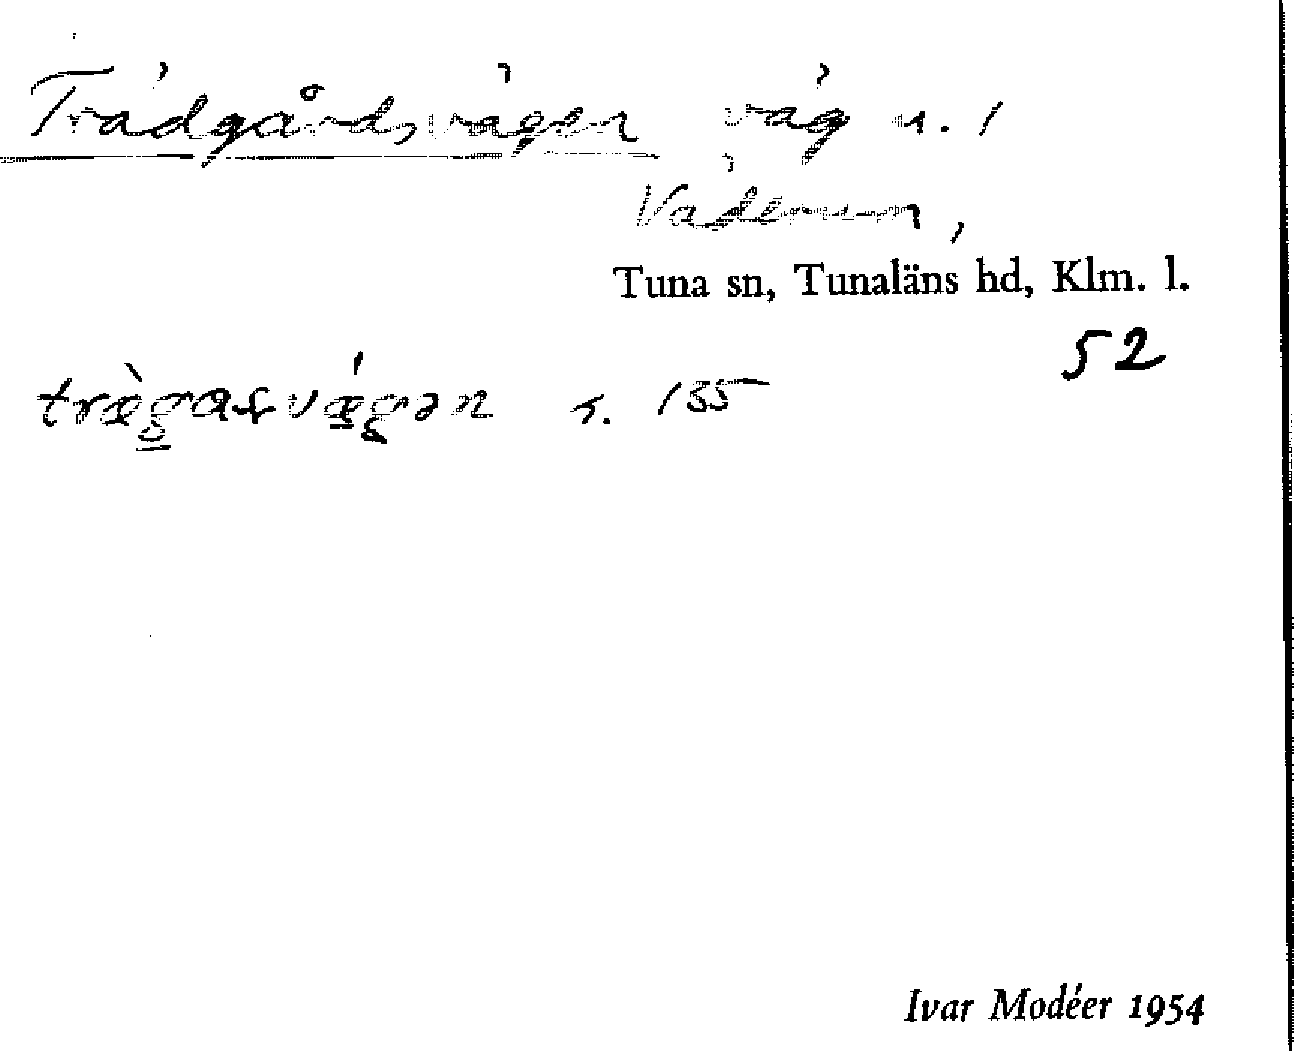 Trädgårdsvägen väg u. 1
Väderum,
Tuna sn, Tunaläns hd, Klm. l.
52
træ̀gasvǽgən s. 155
Ivar Modéer 1954